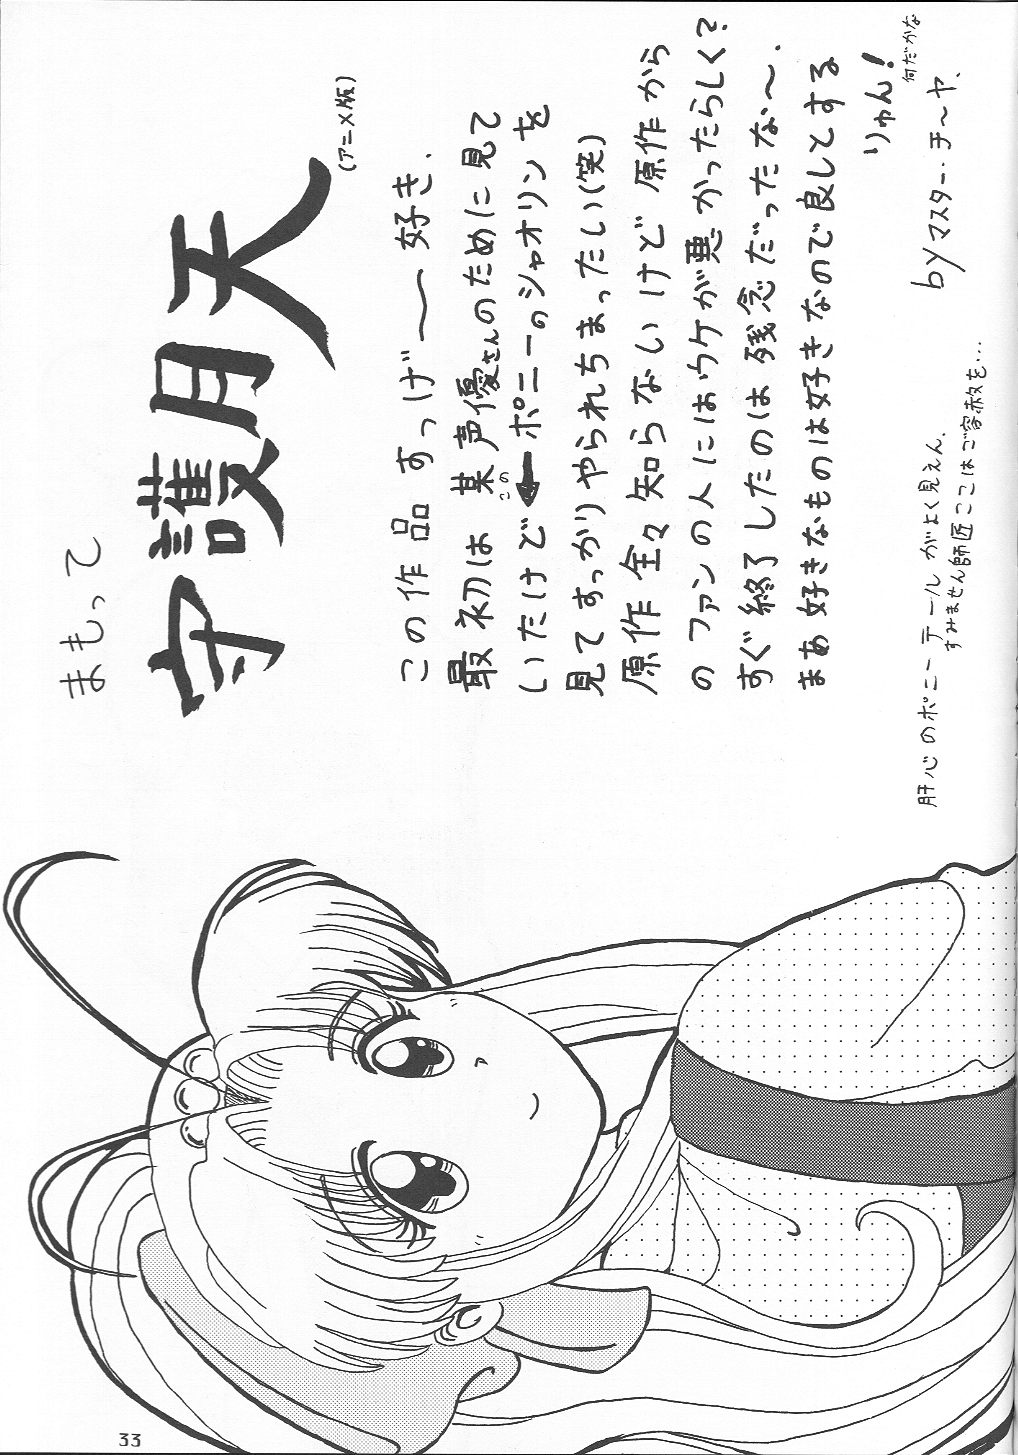 まもって
守護月天
(アニメ版)
この作品 すっげ〜〜好き.
最初は某声優さんのために見て
いたけど←ポニーのシャオリンを
このこ
見てすっかりやられちまったしい(笑)
原作全々知らないけど 原作から
のファンの人にはウケが悪かったらしく?
すぐ終了したのは残念だったな〜.
まぁ好きなものは好きなので良しとする
りゅん!
何だかな
byマスター・チ〜ヤ、
肝心のポニーテールがよく見えん.
すみません師匠ここはご容赦を…
33